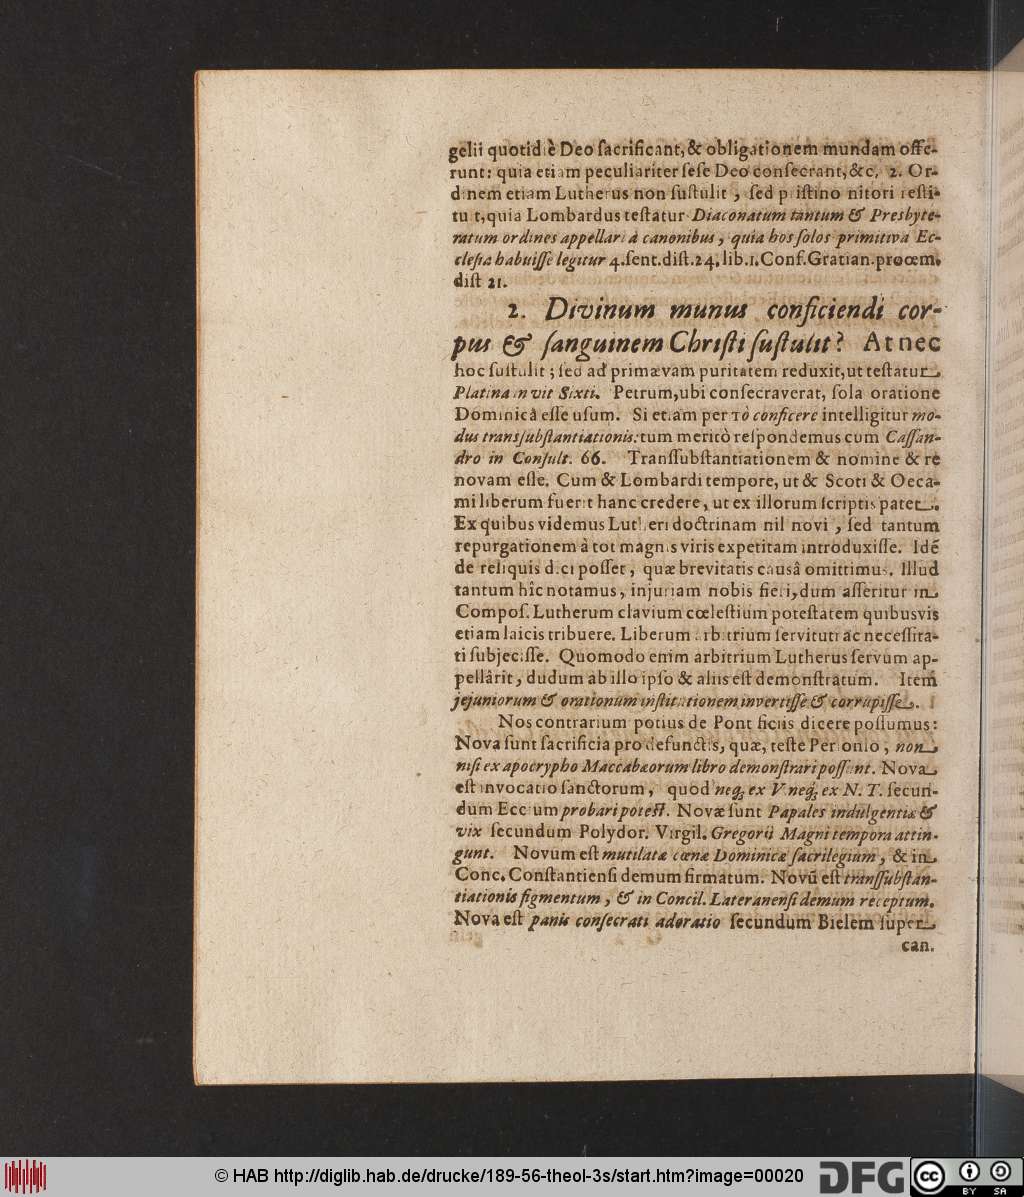 gelii quotidiè Deo ſacrificant, & obligationem mundam offe-
runt: quia etiam peculiariter ſeſe Deo conſecrant, &c. 2. Or-
dinem etiam Lutherus non ſuſtulit, ſed priſtino nitori reſti-
tuit, quia Lombardus teſtatur Diaconatum tantum & Presbyte-
ratum ordines appellari à canonibus, quia hos ſolos primitiva Ec-
cleſia habuiſſe legitur 4. ſent. diſt. 24. lib. 1. Conf. Gratian. proœm.
diſt 21.
2. Divinum munus conficiendi cor-
pus & ſanguinem Chriſti ſuſtulit? At nec
hoc ſuſtulit; ſed ad primævam puritatem reduxit, ut teſtatur
Platina in vit Sixti. Petrum, ubi conſecraverat, ſola oratione
Dominicâ eſſe uſum. Si etiam per τὸ conficere intelligitur mo-
dus transſubſtantiationis: tum meritò reſpondemus cum Caſſan-
dro in Conſult. 66. Tranſſubſtantiationem & nomine & re
novam eſſe. Cum & Lombardi tempore, ut & Scoti & Occa-
mi liberum fuerit hanc credere, ut ex illorum ſcriptis patet.
Ex quibus videmus Lutheri doctrinam nil novi, ſed tantum
repurgationem à tot magnis viris expetitam introduxiſſe. Idē
de reliquis dici poſſet, quæ brevitatis causâ omittimus. Illud
tantum hîc notamus, injuriam nobis fieri, dum aſſeritur in
Compoſ. Lutherum clavium cœleſtium poteſtatem quibusvis
etiam laicis tribuere. Liberum arbitrium ſervituti ac neceſſita-
ti ſubjeciſſe. Quomodo enim arbitrium Lutherus ſervum ap-
pellârit, dudum ab illo ipſo & aliis eſt demonſtratum. Item
jejuniorum & orationum inſtitutionem invertiſſe & corrupiſſe.
Nos contrarium potius de Pontificiis dicere poſſumus:
Nova ſunt ſacrificia pro defunctis, quæ, teſte Perionio, non
niſi ex apocrypho Maccabæorum libro demonſtrari poſſunt. Nova
eſt invocatio ſanctorum, quod neq; ex V. neq; ex N. T. ſecun-
dum Eccium probari poteſt. Novæ ſunt Papales indulgentiæ &
vix ſecundum Polydor. Virgil. Gregorii Magni tempora attin-
gunt. Novum eſt mutilatæ cœnæ Dominicæ ſacrilegium, & in
Conc. Conſtantienſi demum firmatum. Novū eſt transſubſtan-
tiationis figmentum, & in Concil. Lateranenſi demum receptum.
Nova eſt panis conſecrati adoratio ſecundum Bielem ſuper
can.
© HAB http://diglib.hab.de/drucke/189-56-theol-3s/start.htm?image=00020
DFG
cc
BY SA